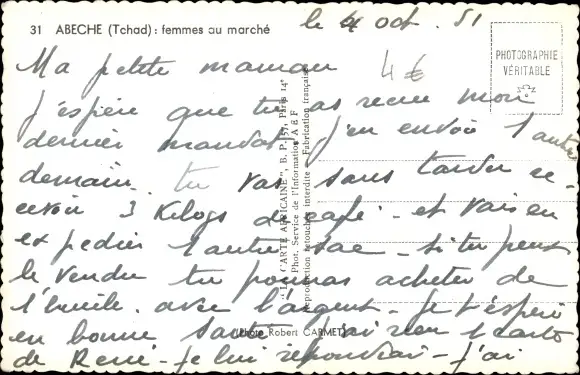 31 ABECHE (Tchad) : femmes au marché
le 4 oct. 51
PHOTOGRAPHIE
VÉRITABLE
Ma petite maman
4€
j'espère que tu as recu mon
dernier mandat j'en envoi 1 autre
demain. tu vas sans tarder re-
cevoir 3 Kilogs de café - et vais en
expedier 1 autre sac - si tu peux
le vendre tu pourras acheter de
l'huile. avec l'argent - Je t'espère
en bonne santé j'ai recu 1 carte
de René - Je lui répondrai - j'ai
"LA CARTE AFRICAINE", B. P. 571, Paris 14e
Phot. Service de l'Information A E F
Reproduction retouchée interdite - Fabrication française
(Photo Robert CARMET)